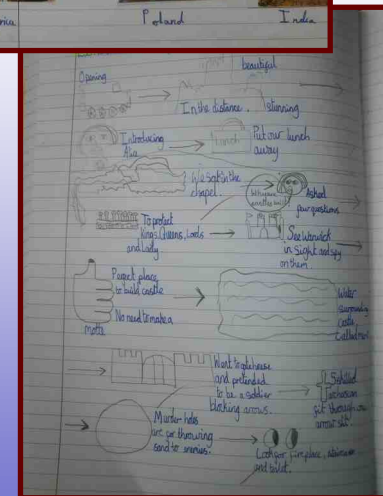 Poland
India
beautiful
Opening
In the distance.
stunning
Introducing
Lunch
Put our lunch
away
We sat in the
chapel.
Asked
four questions
To protect
Kings, Queens, Lords
and Lady
See Warwick
in sight and spy
on them.
Perfect place
to build castle
No need to make a
motte
Water
surrounding
castle,
Went to gatehouse
and pretended
to be a soldier
blocking arrows.
5 skilled
fit through one
arrow slit.
Murder holes
are for throwing
sand to enemies.
Look for, fireplace, staircase
and toilet.